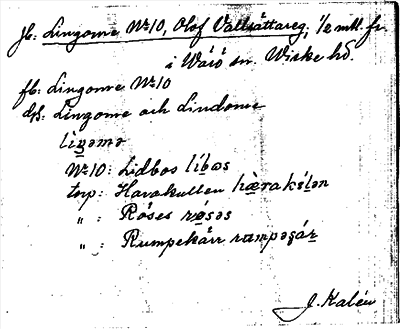 jb: Lingome No 10, Olof Vallsättareg, 1/2 mtl. fr.
i Wärö sn. Wiske hd.
fb: Lingome No 10
dfs: Lingome och Lindome
liŋəmə
No 10: Lidbos líbɷs
torp: Harakullen hæraku̇lən
" : Röses rǿsəs
" : Rumpekärr rumpəçár
J. Kalén